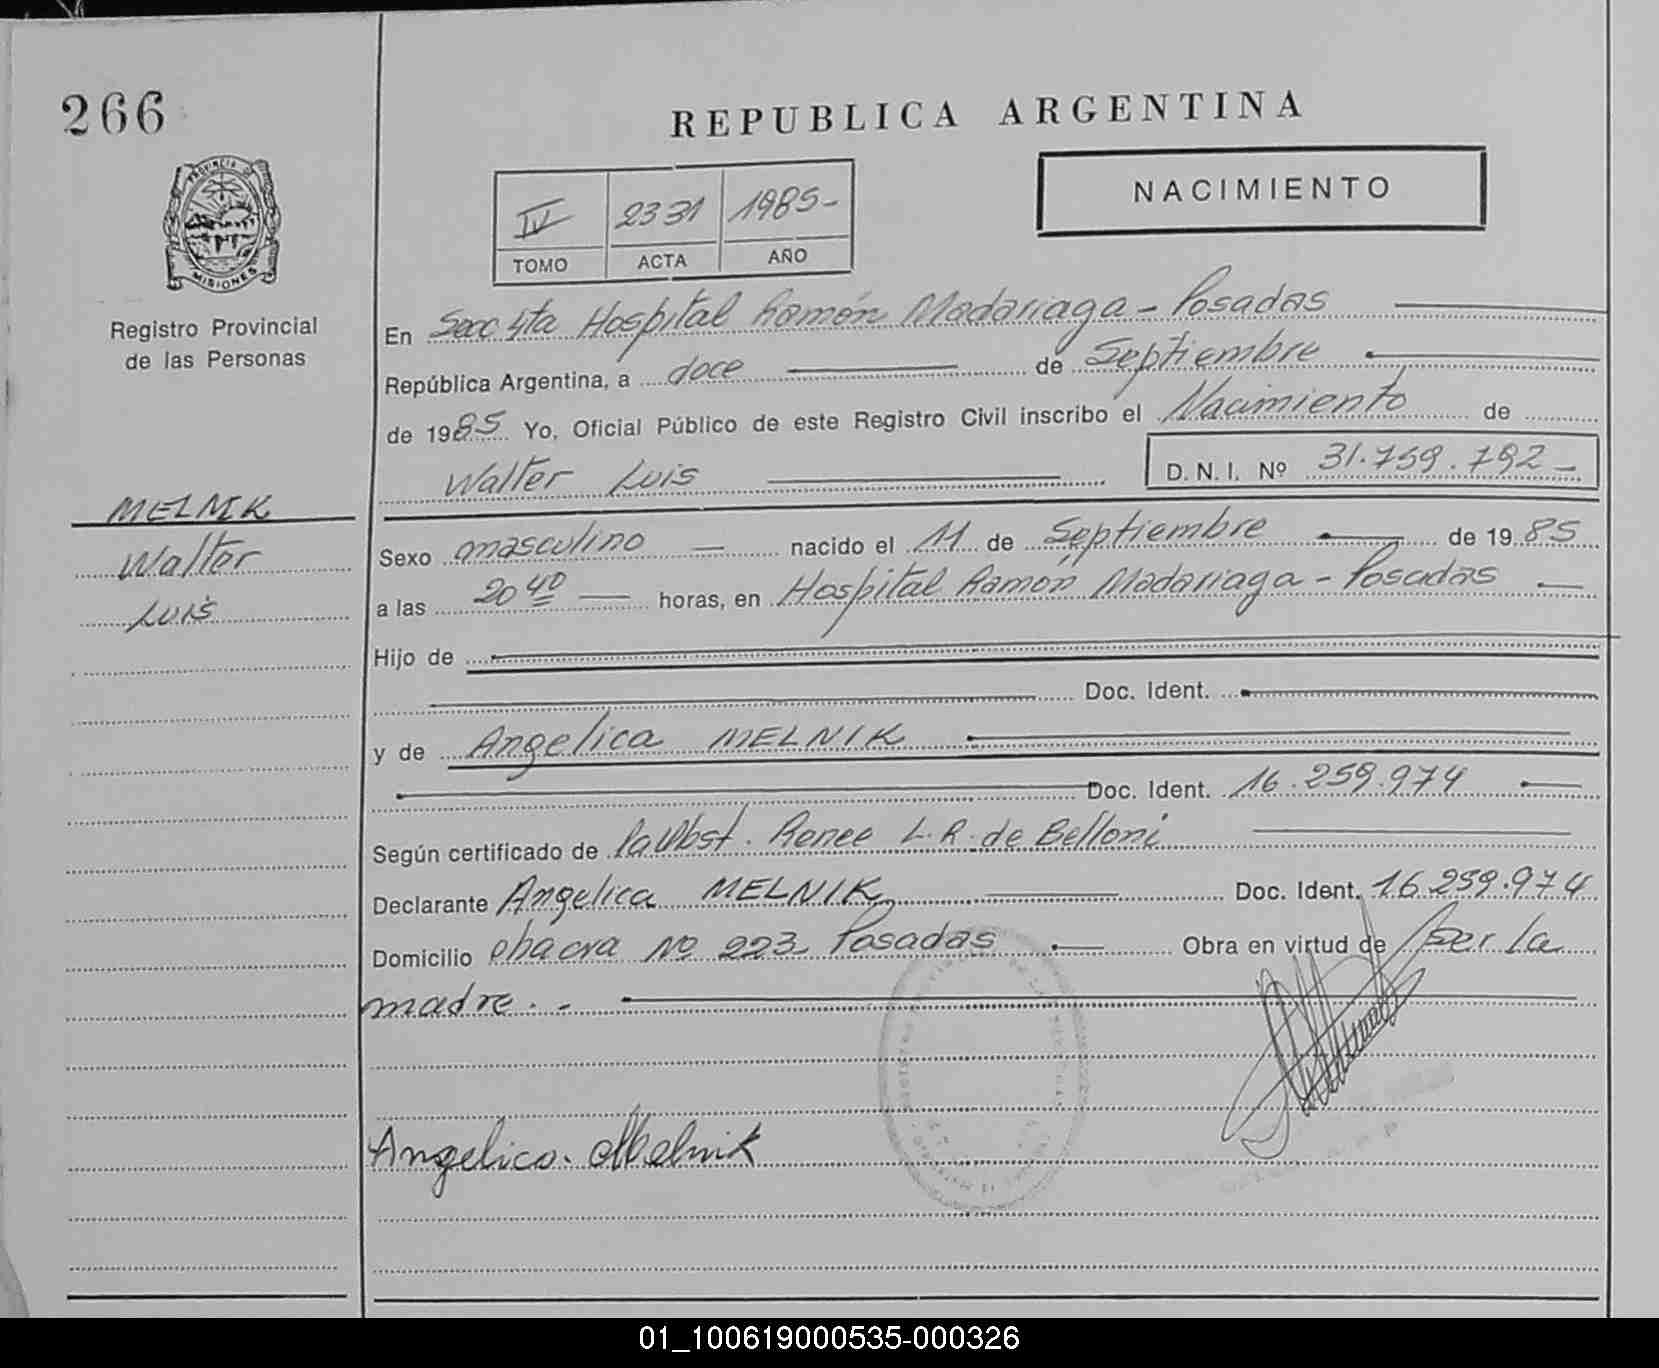 266
REPUBLICA ARGENTINA
PROVINCIA DE
MISIONES
Registro Provincial
de las Personas
IV 2331 1985-
TOMO ACTA AÑO
NACIMIENTO
En Secc 4ta Hospital Ramón Madariaga - Posadas
República Argentina, a doce de Septiembre
de 1985 Yo, Oficial Público de este Registro Civil inscribo el Nacimiento de
Walter Luis D.N.I. Nº 31.759.792-
MELNIK
Walter
Luis
Sexo masculino nacido el 11 de Septiembre de 1985
a las 20 40 horas, en Hospital Ramón Madariaga - Posadas
Hijo de
Doc. Ident.
y de Angelica MELNIK
Doc. Ident. 16.259.974
Según certificado de la Obst. Renee L.R. de Belloni
Declarante Angelica MELNIK Doc. Ident. 16.259.974
Domicilio chacra Nº 223 Posadas Obra en virtud de Ser la
madre.-
Angelica Melnik
01_100619000535-000326